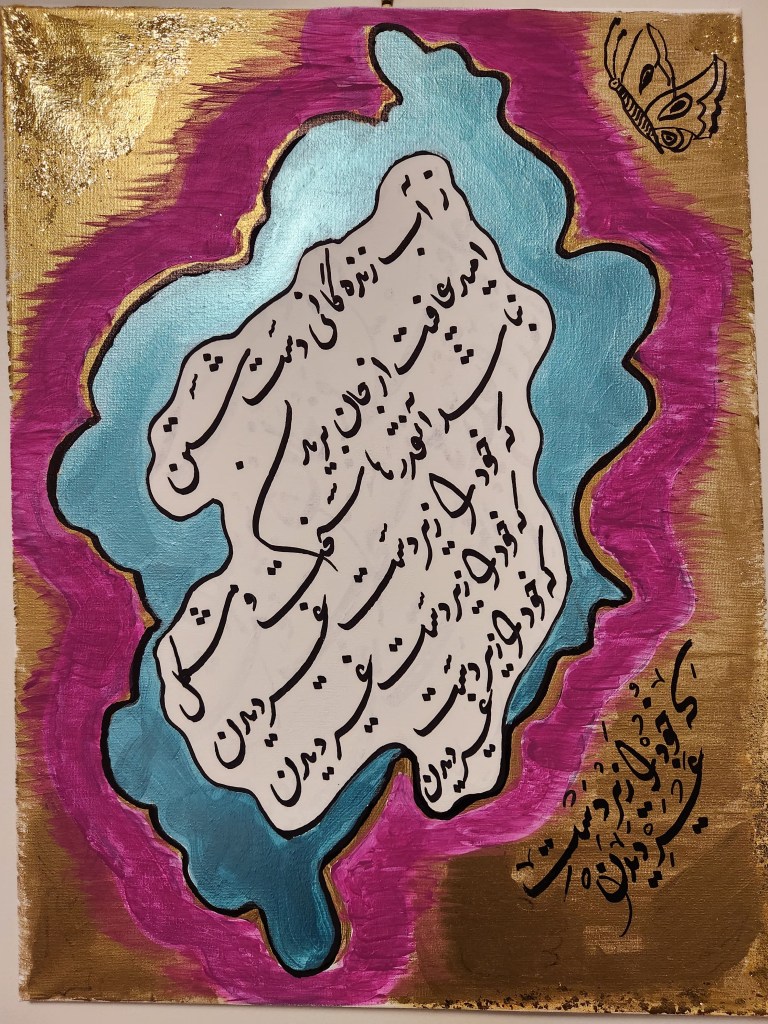 ز آب زندگانی دست شستن
امید عافیت از جان بریدن
نباشد آنقدرها سخت و مشکل
که خود را زیر دست غیر دیدن
که خود را زیر دست غیر دیدن
که خود را زیر دست غیر دیدن
که خود را زیر دست
غیر دیدن